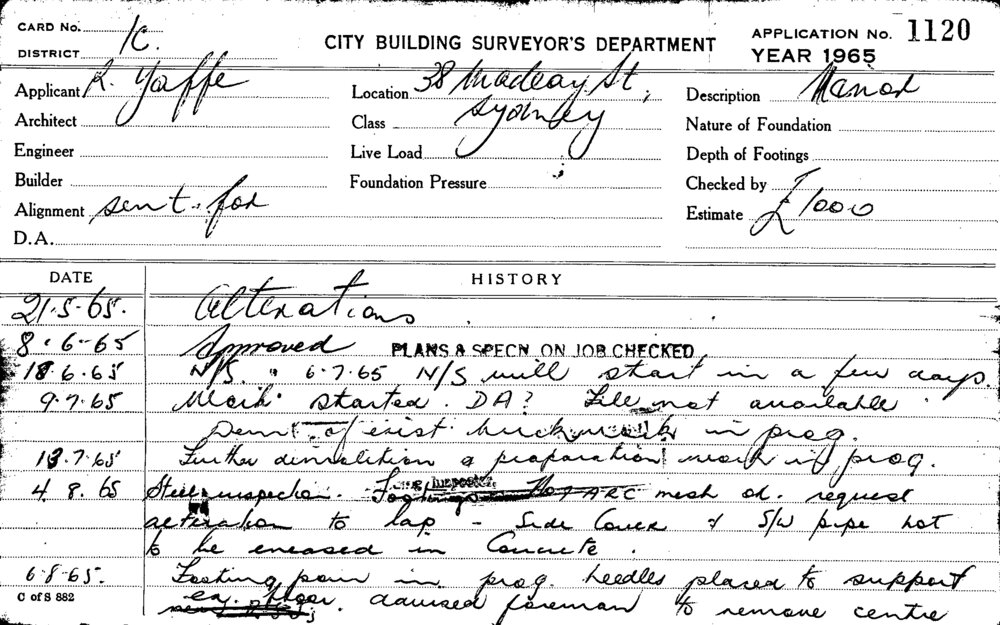 CARD No. 1C. CITY BUILDING SURVEYOR'S DEPARTMENT APPLICATION No. 1120
DISTRICT YEAR 1965
Applicant R. Yaffe Location 38 Macleay St, Description Manor
Architect Class Sydney Nature of Foundation
Engineer Live Load Depth of Footings
Builder Foundation Pressure Checked by
Alignment sent for Estimate £1000
D.A.
DATE HISTORY
21.5.65. Alterations
8.6.65 Approved PLANS & SPECN ON JOB CHECKED
18.6.65 N/S. " 6.7.65 N/S will start in a few days.
9.7.65 Work started. DA? File not available
Demn of exist brickwork in prog.
13.7.65 Further demolition & preparation work in prog.
4.8.65 Steel inspection. mesh ok. request
alteration to lap - Side Cover & S/W pipe not
to be encased in Concrete.
6.8.65. Footing pour in prog. Needles placed to support
ex. floor. advised foreman to remove centre
C of S 882